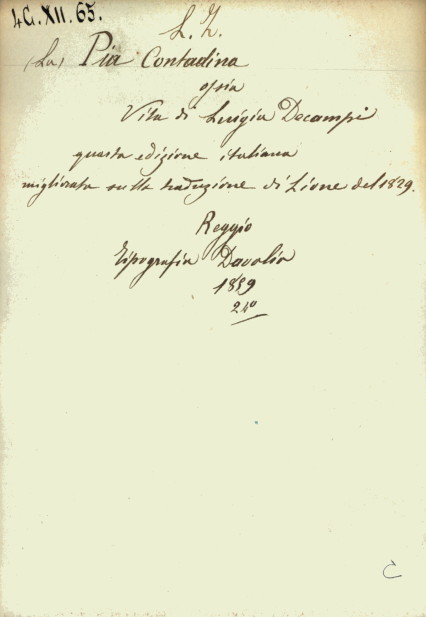 4G.XII.65.
L. Z.
(La) Pia Contadina
ossia
Vita di Luigia Decampi
quarta edizione italiana
migliorata sulla traduzione di Lione del 1829.
Reggio
Tipografia Davolio
1859
24º
C